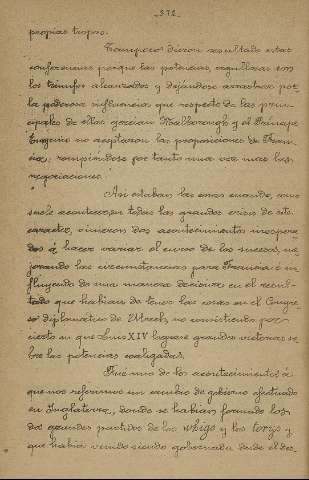 -372-
propias tropas.
Tampoco dieron resultado estas
conferencias porque las potencias, orgullosas con
los triunfos alcanzados y dejándose arrastrar por
la poderosa influencia que respecto de las prin-
cipales de ellas gozaban Malborough y el Príncipe
Eugenio no aceptaron las proposiciones de Fran-
cia; rompiéndose por tanto una vez mas las
negociaciones.
Así estaban las cosas cuando, como
suele acontecer en todas las grandes crisis de este
caracter, vinieron dos acontecimientos inespera-
dos á hacer variar el curso de los sucesos, me-
jorando las circunstancias para Francia é in-
fluyendo de una manera decisiva en el resul-
tado que habían de tener las cosas en el Congre-
so diplomático de Utrech, no consistiendo por
cierto en que Luis XIV lograse grandes victorias so-
bre las potencias coaligadas.
Fué uno de los acontecimientos á
que nos referimos un cambio de gobierno efectuado
en Inglaterra, donde se habían formado los
dos grandes partidos de los whigs y los torys y
que había venido siendo gobernada desde el des-